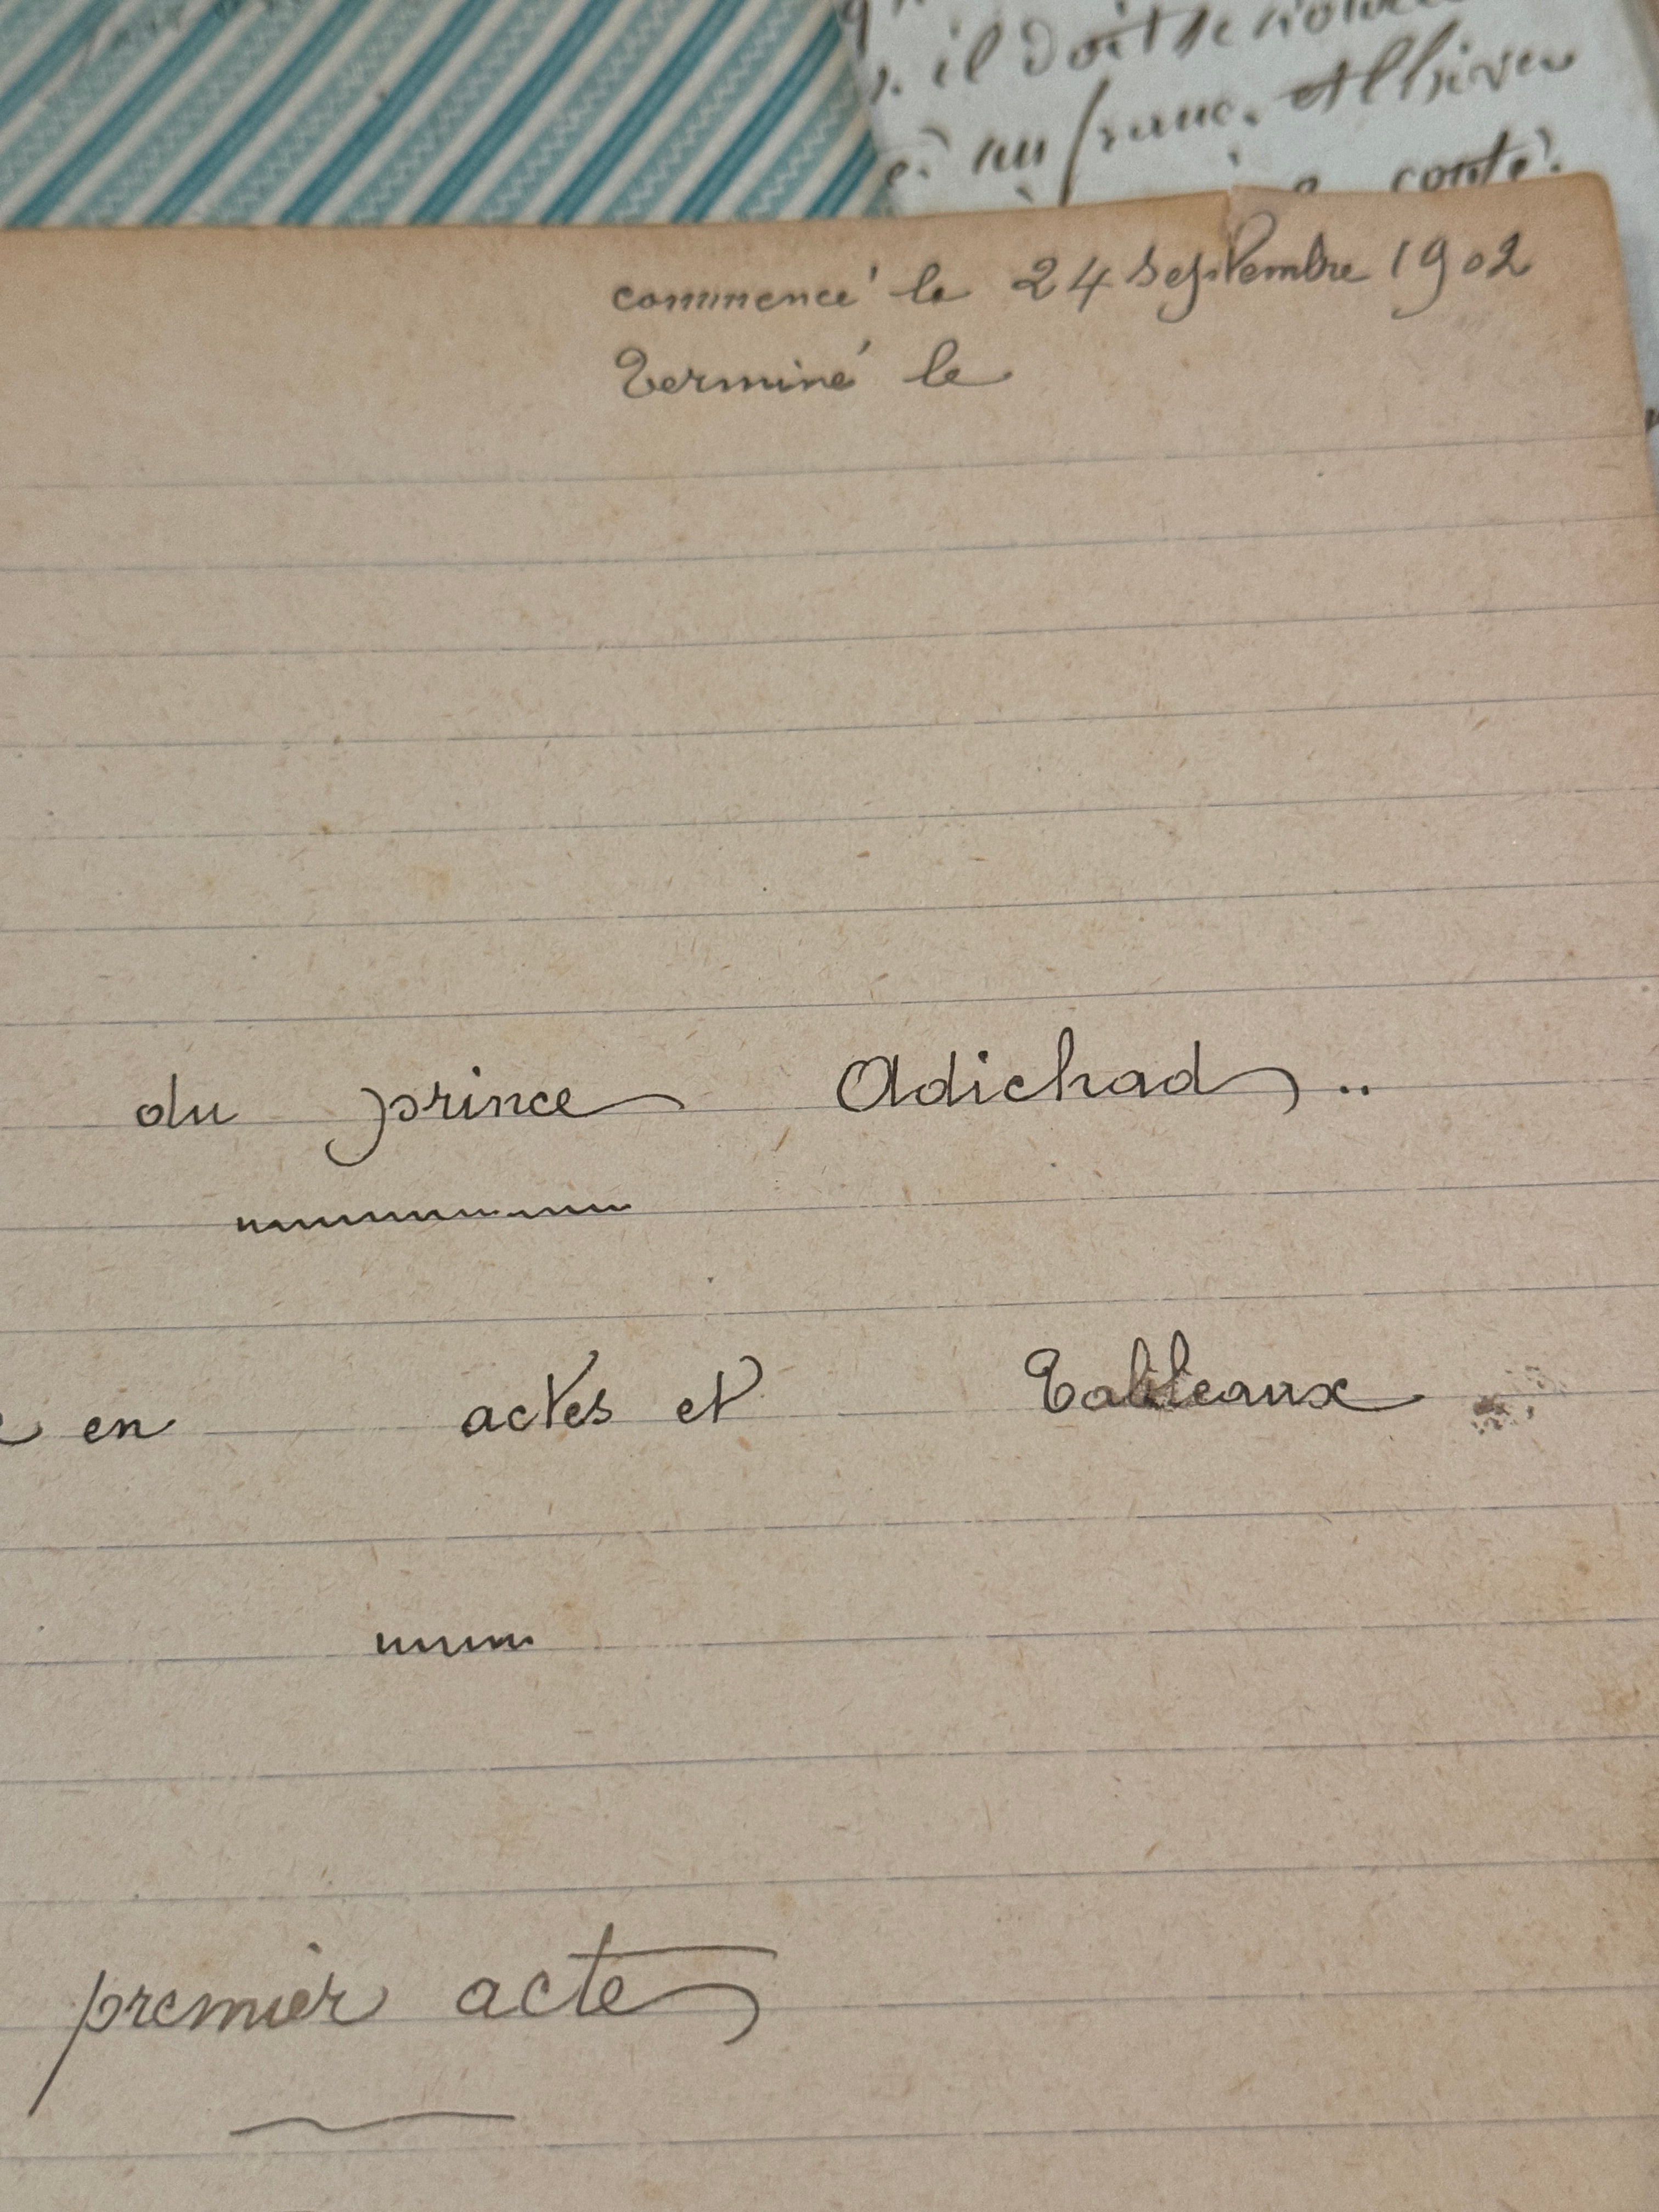 il doit se
un franc. et l'hiver
conte.
commencé le 24 septembre 1902
Terminé le
du prince Adichad..
en actes et Tableaux
premier acte